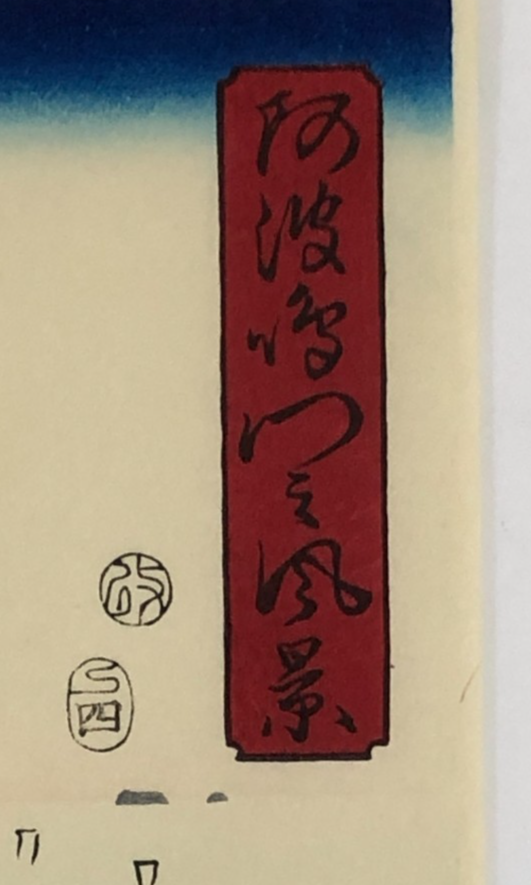 阿波鳴門之風景
改
巳四